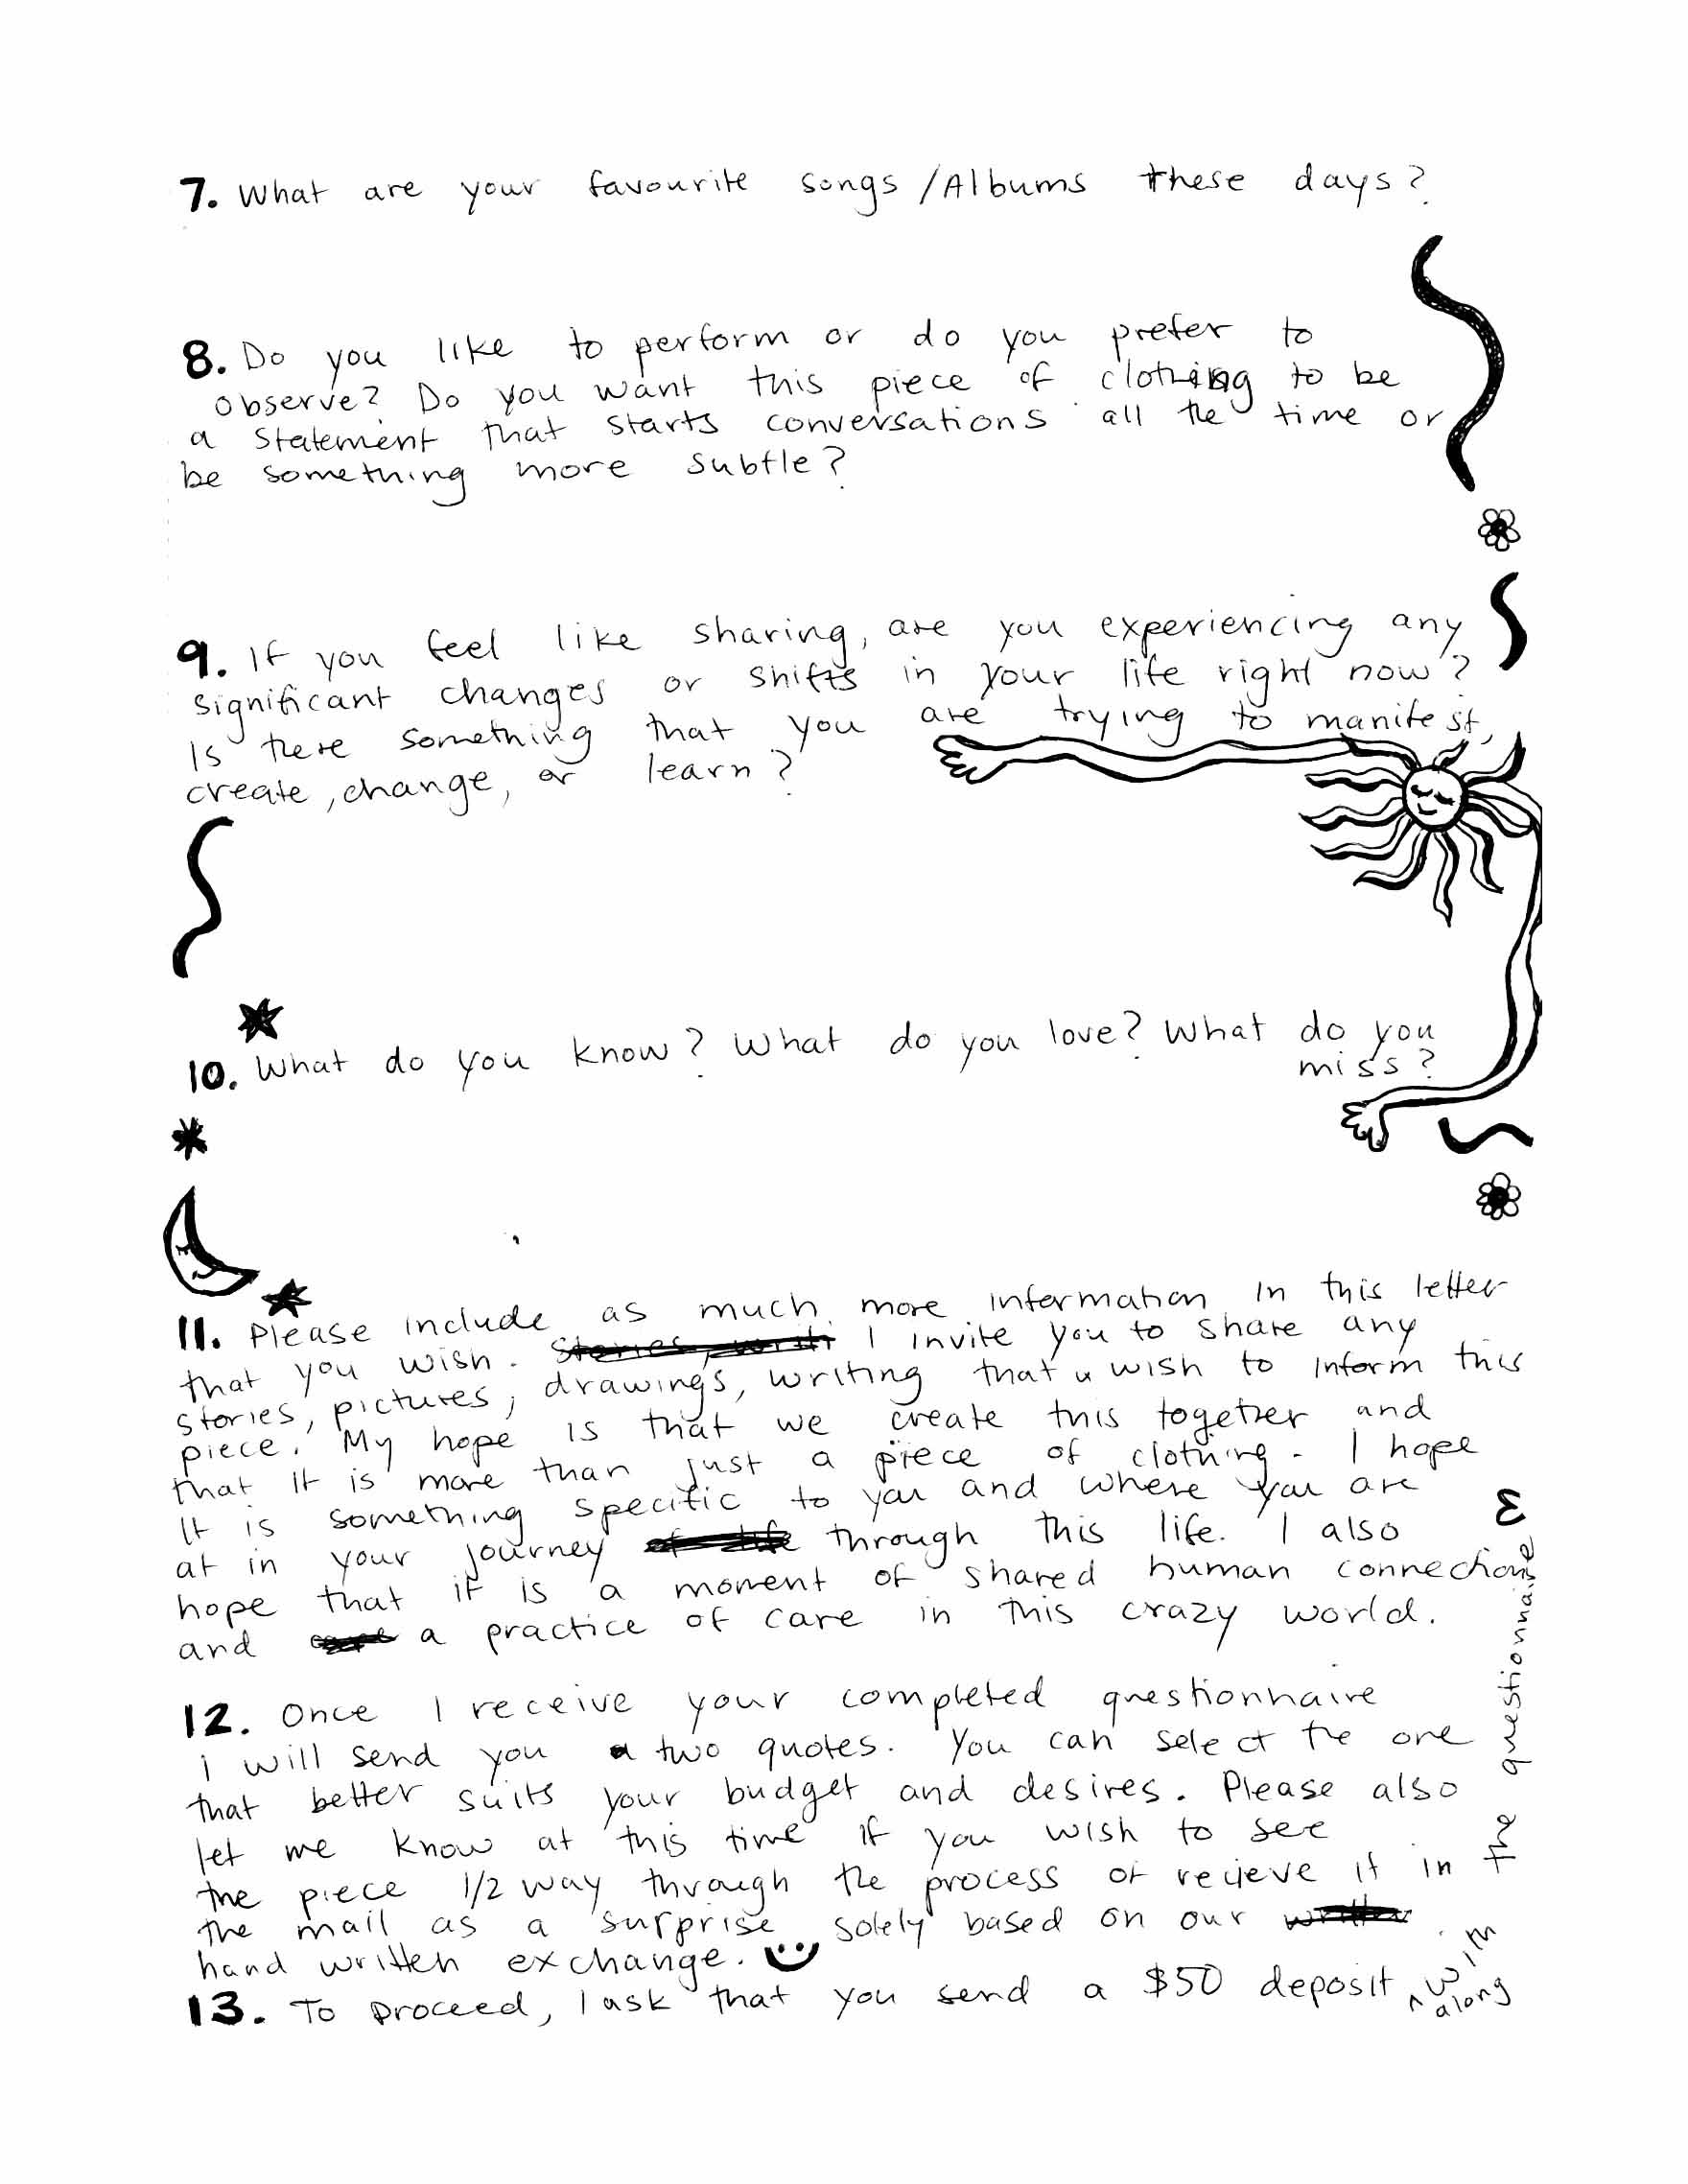 7. What are your favourite songs / Albums these days?
8. Do you like to perform or do you prefer to
observe? Do you want this piece of clothing to be
a statement that starts conversations all the time or
be something more subtle?
9. If you feel like sharing, are you experiencing any
significant changes or shifts in your life right now?
Is there something that you are trying to manifest,
create, change, or learn?
10. What do you know? What do you love? What do you
miss?
11. Please include as much more information in this letter
that you wish. I invite you to share any
stories, pictures, drawings, writing that u wish to inform this
piece. My hope is that we create this together and
that it is more than just a piece of clothing. I hope
It is something specific to you and where you are
at in your journey through this life. I also
hope that it is a moment of shared human connection
and a practice of care in this crazy world.
12. Once I receive your completed questionnaire
i will send you two quotes. You can select the one
that better suits your budget and desires. Please also
let me know at this time if you wish to see
the piece 1/2 way through the process or recieve it in
the mail as a surprise solely based on our
hand written exchange.
13. To proceed, I ask that you send a $50 deposit along with
the questionnaire